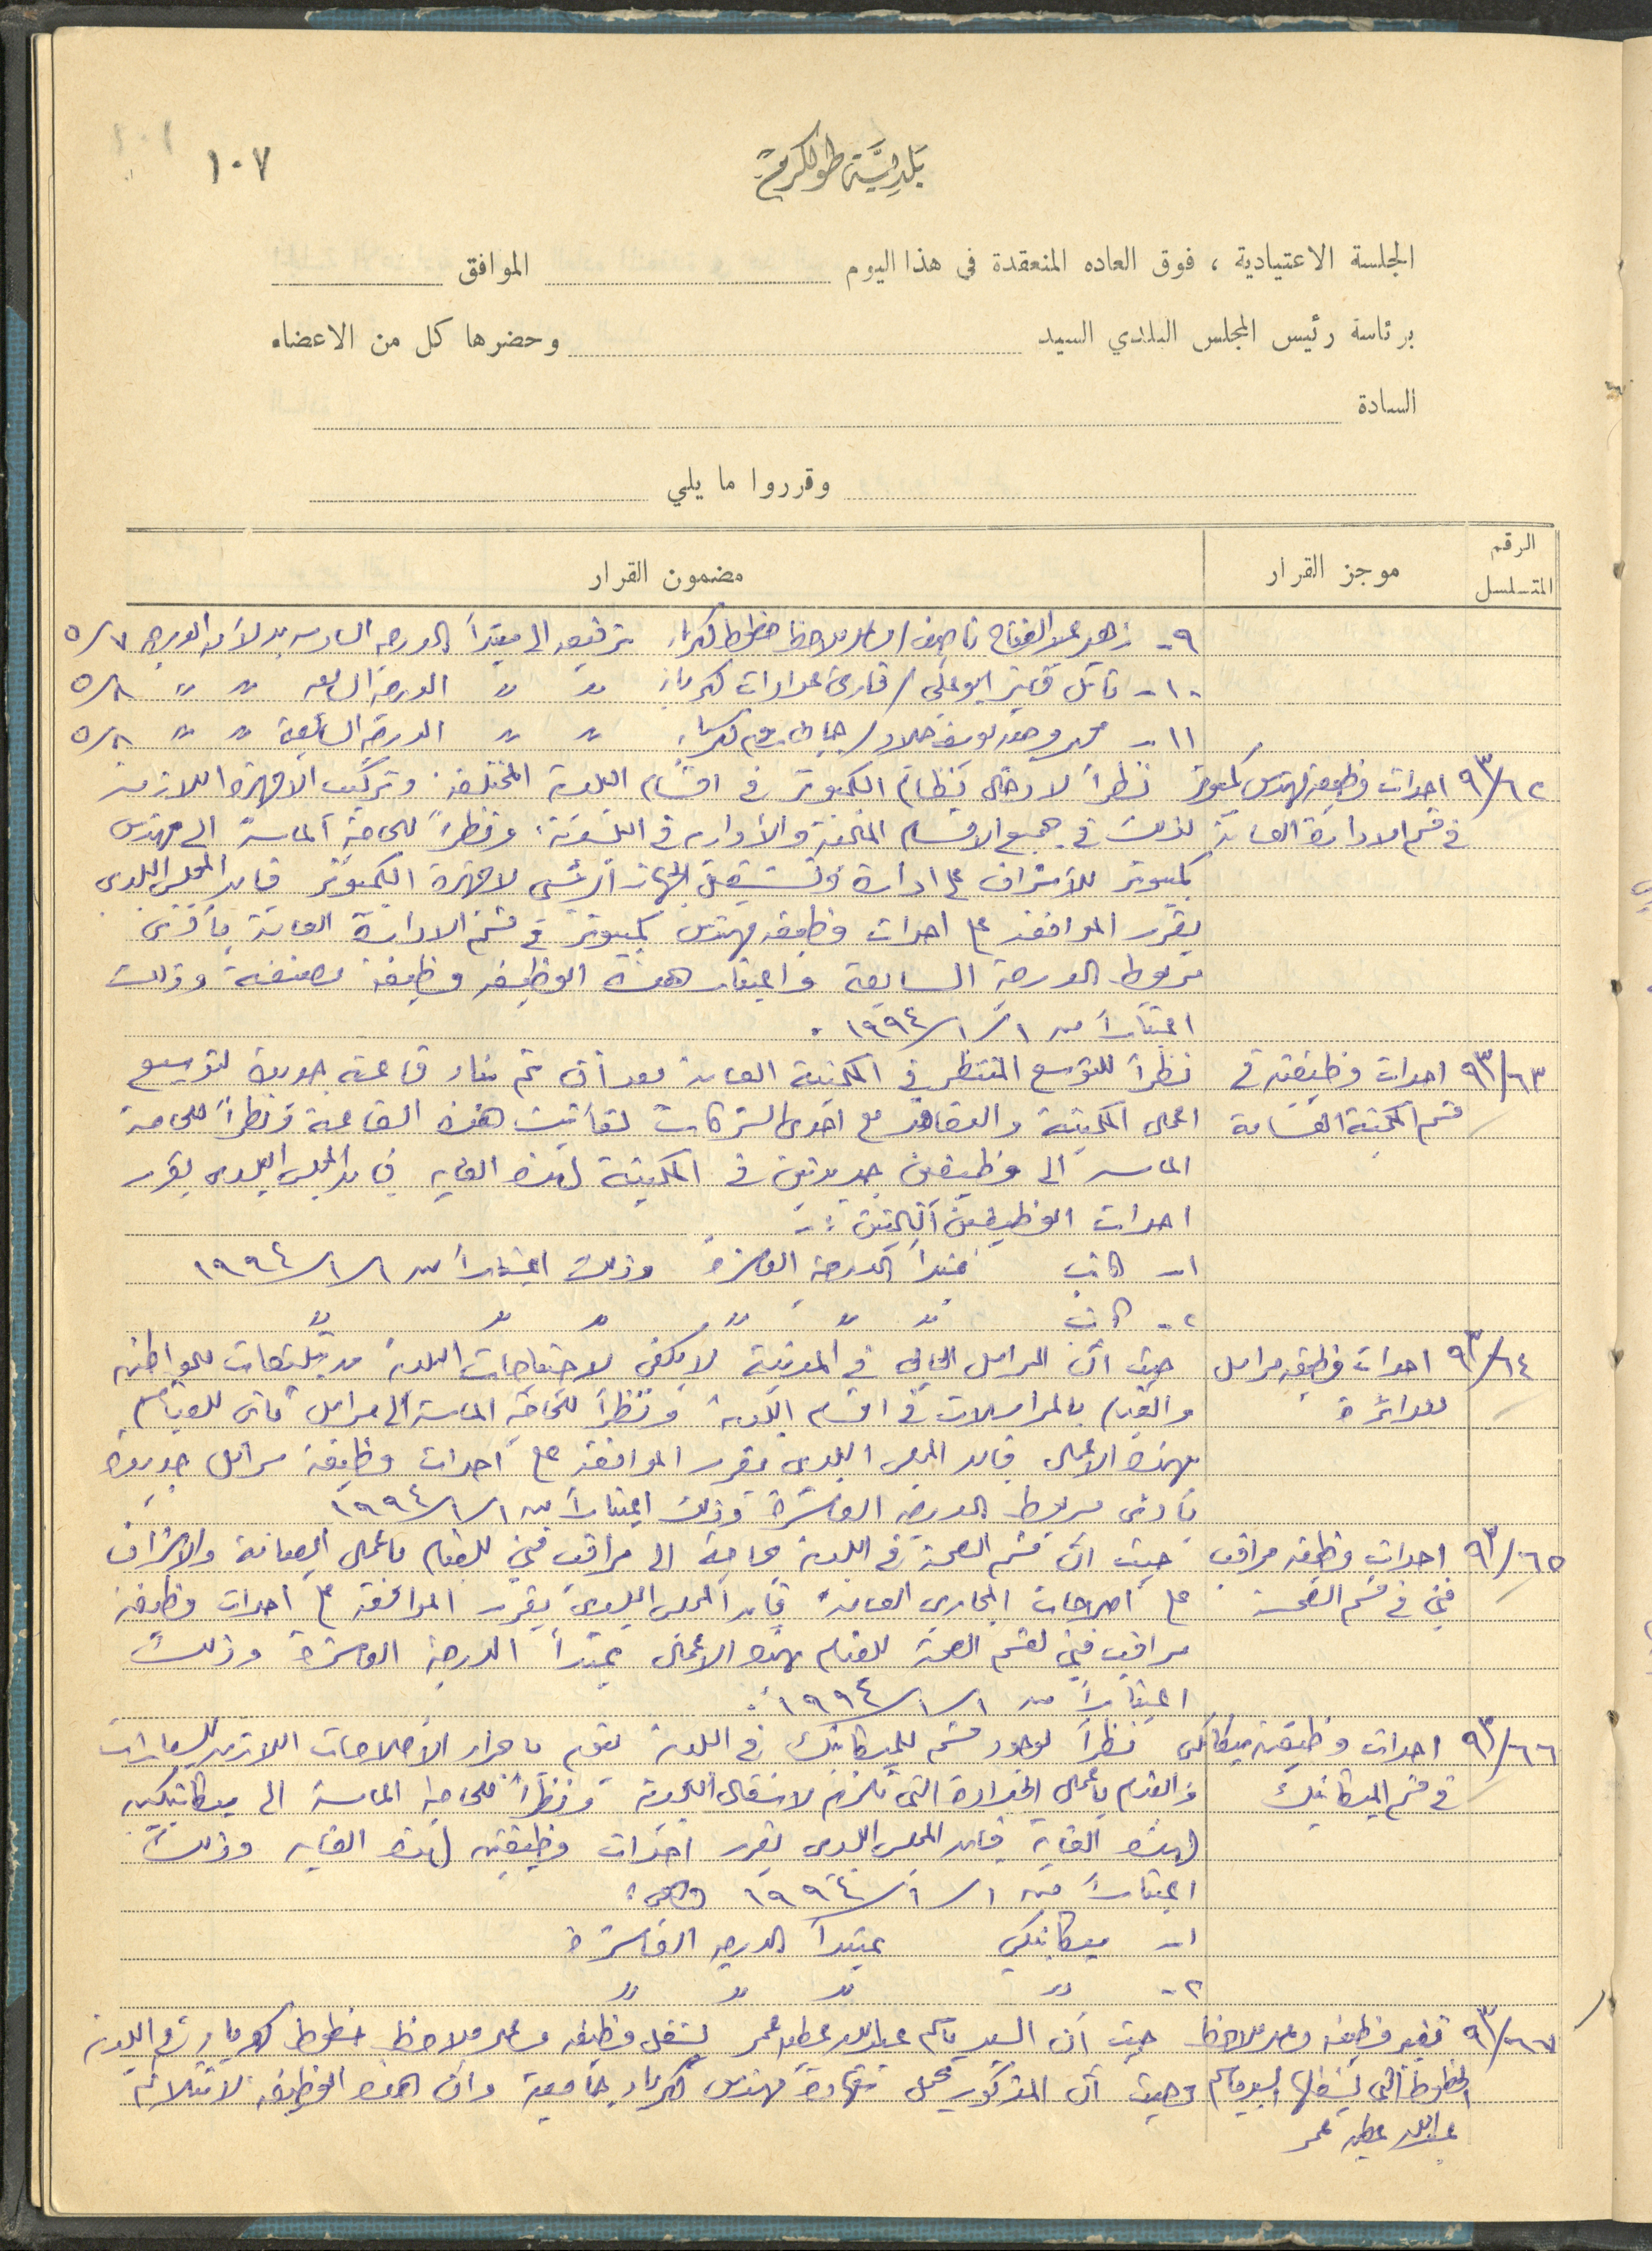 ١٠٧
بلدية طولكرم
الجلسة الاعتيادية ، فوق العاده المنعقدة في هذا اليوم الموافق
برئاسة رئيس المجلس البلدي السيد وحضرها كل من الاعضاء
السادة
وقرروا ما يلي
الرقم المتسلسل موجز القرار مضمون القرار
٩- زهير عبد الفتاح ناصيف / مساعد ملاحظ خطوط كهرباء ترفيعه الى مبتدأ الدرجه السادسه بدلا من الدرجه ٥/٧
١٠- نائل فايز ابو علي / قارئ عدادات كهرباء " " الدرجة السابعه " " ٥/٨
١١- محمد يوسف / جابي رسوم كهرباء " " الدرجة السابعة " " ٥/٨
٩٣/٦٢ احداث وظيفة مهندس كمبيوتر نظراً لادخال نظام الكمبيوتر في اقسام البلدية المختلفة وتركيب الاجهزة اللازمة
في قسم الادارة العامة لذلك في جميع الاقسام الفنية والادارية في البلدية، ونظراً للحاجة الماسة الى مهندس
كمبيوتر للاشراف على ادارة وتشغيل الجهاز الرئيسي لاجهزة الكمبيوتر فان المجلس البلدي
يقرر الموافقة على احداث وظيفة مهندس كمبيوتر في قسم الادارة العامة بأدنى
مربوط الدرجة السابعة واعتبار هذه الوظيفة وظيفة مصنفة وذلك
اعتباراً من ١/١/١٩٩٤ .
٩٣/٦٣ احداث وظيفتين في نظراً للتوسع المنتظر في المكتبة العامة بعد أن تم بناء قاعة جديدة لتوسيع
قسم المكتبة العامة اعمال المكتبة والتعاقد مع احدى الشركات لتأثيث هذه القاعة ونظراً للحاجة
الماسة الى وظيفتين جديدتين في المكتبة لهذه الغاية فان المجلس البلدي يقرر
احداث الوظيفتين التاليتين :-
١- كاتب مبتدأ الدرجة العاشرة وذلك اعتباراً من ١/١/١٩٩٤
٢- كاتب " " " " " "
٩٣/٦٤ احداث وظيفة مراسل حيث أن المراسل الحالي في المدينة لا يكفي لاحتياجات البلدية من تبليغات للمواطنين
للدائرة والقيام بالمراسلات في اقسام البلدية ونظراً للحاجة الماسة الى مراسل ثاني للقيام
بهذه الاعمال فان المجلس البلدي يقرر الموافقة على احداث وظيفة مراسل جديدة
بأدنى مربوط الدرجة العاشرة وذلك اعتباراً من ١/١/١٩٩٤
٩٣/٦٥ احداث وظيفة مراقب حيث ان قسم الصحة في البلدية بحاجة الى مراقب فني للقيام باعمال الصيانة والاشراف
فني في قسم الصحة على اصلاحات المجاري العامة فان المجلس البلدي يقرر الموافقة على احداث وظيفة
مراقب فني لقسم الصحة للقيام بهذه الاعمال بمبتدأ الدرجة العاشرة وذلك
اعتباراً من ١/١/١٩٩٤ .
٩٣/٦٦ احداث وظيفة ميكانيكي نظراً لوجود قسم للميكانيك في البلدية يقوم باجراء الاصلاحات اللازمة للسيارات
في قسم الميكانيك والقيام باعمال الحدادة التي تلزم لاشغال البلدية ونظراً للحاجة الماسة الى ميكانيكيين
لهذه الغاية فان المجلس البلدي يقرر احداث وظيفتين لهذه الغاية وذلك
اعتباراً من ١/١/١٩٩٤ وهي :
١- ميكانيكي بمبتدأ الدرجة العاشرة
٢- " " " "
٩٣/٦٧ تغيير وظيفة مساعد ملاحظ حيث أن السيد باسم عبدالله عطيه عمر يشغل وظيفة مساعد ملاحظ خطوط كهرباء في البلدية
الخطوط التي يشغلها السيد باسم وحيث أن المذكور يحمل شهادة مهندس كهرباء جامعية وان هذه الوظيفة لا تتلائم
عبدالله عطيه عمر